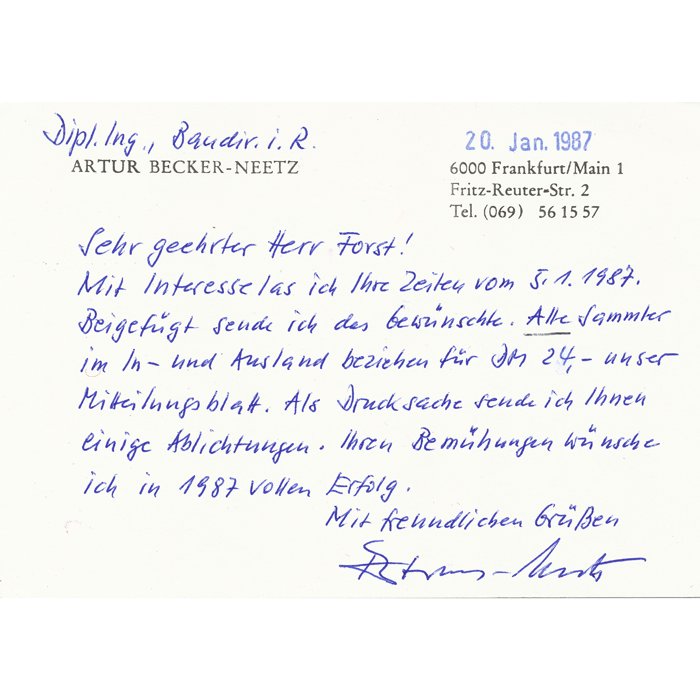 Dipl. Ing., Baudir. i. R.
ARTUR BECKER-NEETZ
20. Jan. 1987
6000 Frankfurt/Main 1
Fritz-Reuter-Str. 2
Tel. (069) 56 15 57
Sehr geehrter Herr Forst!
Mit Interesse las ich Ihre Zeilen vom 5.1.1987.
Beigefügt sende ich das Gewünschte. Alle Sammler
im In- und Ausland beziehen für DM 24,- unser
Mitteilungsblatt. Als Drucksache sende ich Ihnen
einige Ablichtungen. Ihren Bemühungen wünsche
ich in 1987 vollen Erfolg.
Mit freundlichen Grüßen